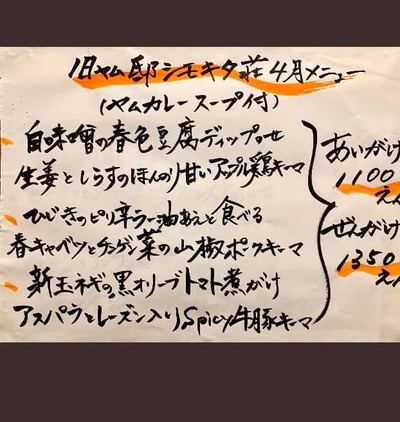 旧ヤム邸シモキタ荘4月メニュー
(ヤムカレースープ付)
白味噌の春色豆腐ディップのせ
生姜としらすのほんのり甘いアップル鶏キーマ
ひじきのピリ辛ラー油あえと食べる
春キャベツとチンゲン菜の山椒ポークキーマ
新玉ネギの黒オリーブトマト煮がけ
アスパラとレーズン入りSpicy牛豚キーマ
あいがけ
1100
えん
ぜんがけ
1350
えん